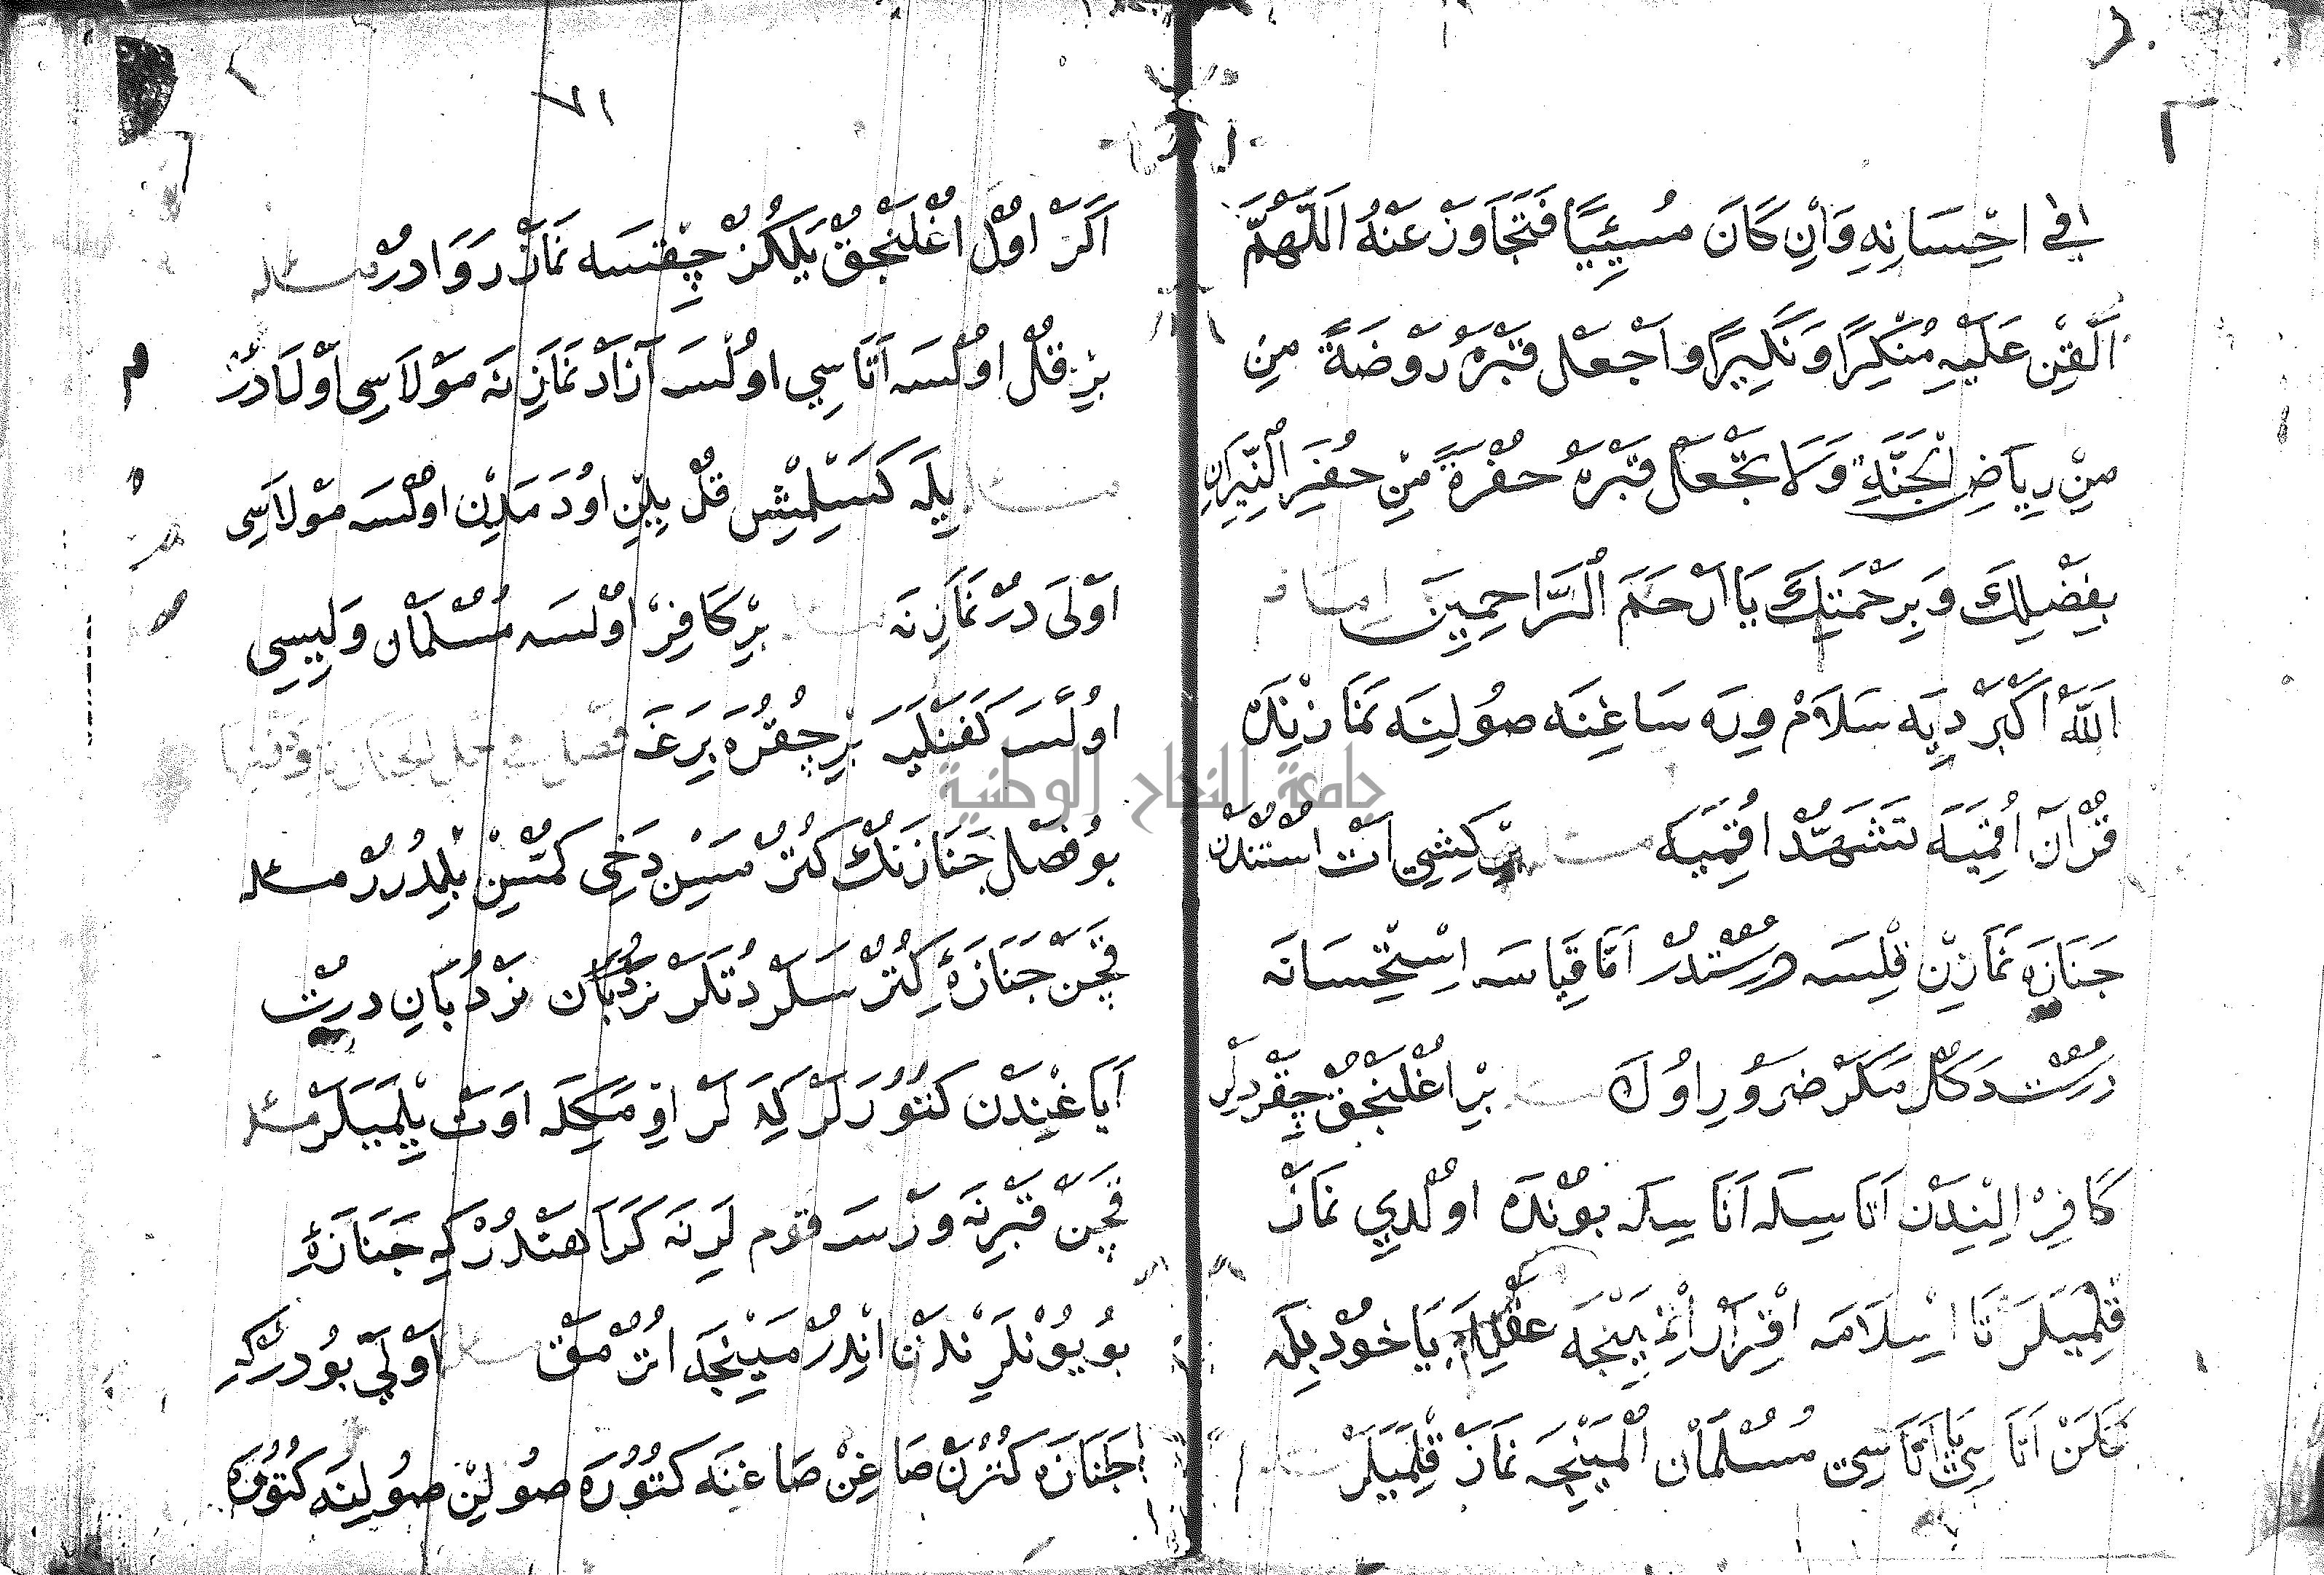 في اِحْسَانِهِ وَاِنْ كَانَ مُسِيئًا فَتَجَاوَزْ عَنْهُ اَللّٰهُمَّ
اَلْقِنْ عَلَيْهِ مُنْكِرًا وَنَكِيرًا وَاَجْعَلْ قَبْرَهُ رَوْضَةً مِنْ
مِنْ رِيَاضِ الْجَنَّةِ وَلَا تَجْعَلْ قَبْرَهُ حُفْرَةً مِنْ حُفَرِ النِّيرَانِ
بِفَضْلِكَ وَبِرَحْمَتِكَ يَا اَرْحَمَ الرَّاحِمِينَ
اَللّٰهُ اَكْبَرْ دِيَه سَلَامْ وِرَه سَاغِنَه صُولِنَه نَمَازِنْدَه
قُرْآنْ اُقُمَيَه تَشَهُّدْ اُقُمَيَه مسئله بِرْ كِشِي اَتْ اُسْتُنْدَنْ
جَنَازَه نَمَازِنْ قِلِسَه دُرُسْتْدُرْ اَمَّا قِيَاسَه اِسْتِحْسَانَه
دُرُسْتْ دَكُلْ مَكَرْ ضَرُورِ اوُلَ مسئله بِرْ اُغْلَنْجُقْ چِقَرْدِلَرْ
كَافِرْ اِلِنْدَنْ اَتَاسِلَه اَنَاسِلَه بُونْدَه اوُلْدِي نَمَازْ
قِلْمَيَلَرْ تَا اِسْلَامَه اِقْرَارْ اِتْمَيِنْجَه عَقْلِلَه يَا خُودْ بِلَه
كَلَنْ اَتَاسِي يَا اَنَاسِي مُسُلْمَانْ اُلْمَيِنْجَه نَمَازْ قِلْمَيَلَرْ مسئله
٧١
اَكَرْ اوُلْ اُغْلَنْجُقْ يَلَكُزْ چِقْسَه نَمَازْ رَوَادُرْ مسئله
بِرْ قُلْ اوُلْسَه اَتَاسِي اوُلْسَه آزَادْ نَمَازِنَه مَوْلَاسِي اَوْلَادُرْ
مسئله بِلَه كَسِلْمِشْ قُلْ بِلِنْ اوُدَمَدِنْ اوُلْسَه مَوْلَاسِي
اَوْلَى دُرْ نَمَازِنَه مسئله بِرْ كَافِرْ اوُلْسَه مُسُلْمَانْ وَلِيسِي
اوُلْسَه كَفَنْلَيَه بِرْ چُقُرَه بِرَغَه فَصْل في حمل الجنازة و
بُو فَصْل جَنَازَنُكْ كُتُرْمَسِنْ دَخِى كَتْمَسِنْ بِلْدُرُرْ مسئله
قَچَنْ جَنَازَهٔ كُتُرْسَلَرْ دُتَلَرْ نَرْدُبَانْ نَرْدُبَانِ دَرْتْ
اَيَاغِنْدَنْ كَتُورَلَرْ كَلَه لَرْ اوِمَكِلَه اَوَتْ يِلْمَيَلَرْ مسئله
قَچَنْ قَبْرِنَه وَرْسَه قَوْم لَرِنَه كَرَاهَتْدُرْ كِه جَنَازَهٔ
بُويُونْلَرِنْدَنْ اِنْدُرْمَيِنْجَه اُتُرْمَقْ مسئله اَوْلَى بُودُرْكِه
جَنَازَه كُتُرَنْ صَاغِنْ صَاغِنَه كَتُورَه صُولِنْ صُولِنَه كَتُورَه
جامعة النجاح الوطنية